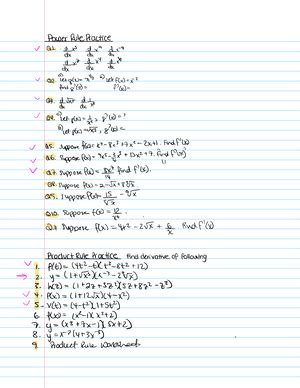 Power Rule Practice
Q1. d/dx x² d/dx x⁴ d/dx x⁻⁴
d/dx x³ d/dx x⁵ d/dx x
Q2. a) Let g(x) = find g'(x) = b) Let f(x) = x² f'(x) =
Q3. d/dx √x d/dx
Q4. a) Let p(x) = p'(x) = ?
b) Let p(x) = √x, p'(x) =
Q5. Suppose f(x) = - 2x + 1. Find f'(x)
Q6. Suppose f(x) = + 13x² + 9. Find f'(x)
Q7. Suppose f(x) = find f'(x).
Q8. Suppose f(x) = 2 - √x +
Q9. Suppose f(x) = 15/√x -
Q10. Suppose f(x) =
Suppose f(x) = 4x² - 2√x + 6/x Find f'(x)
Product Rule Practice find derivative of following
1. f(t) = (4t² - t)(t³ - 8t² + 12)
2. y = (1 + √x³)(x⁻³ - 2∛x)
3. h(z) = (1 + 2z + 3z²)(5z + 8z² - z³)
4. P(x) = (1 + 12√x)(4 - x²)
5. V(t) = (4 - t²)(1 + 5t²)
6. f(x) = (x² - 1)(x² + 2)
7. y = (x³ + 7x - 1)(5x + 2)
8. y = x⁻²(4 + 3x⁻³)
9. Product Rule Worksheet